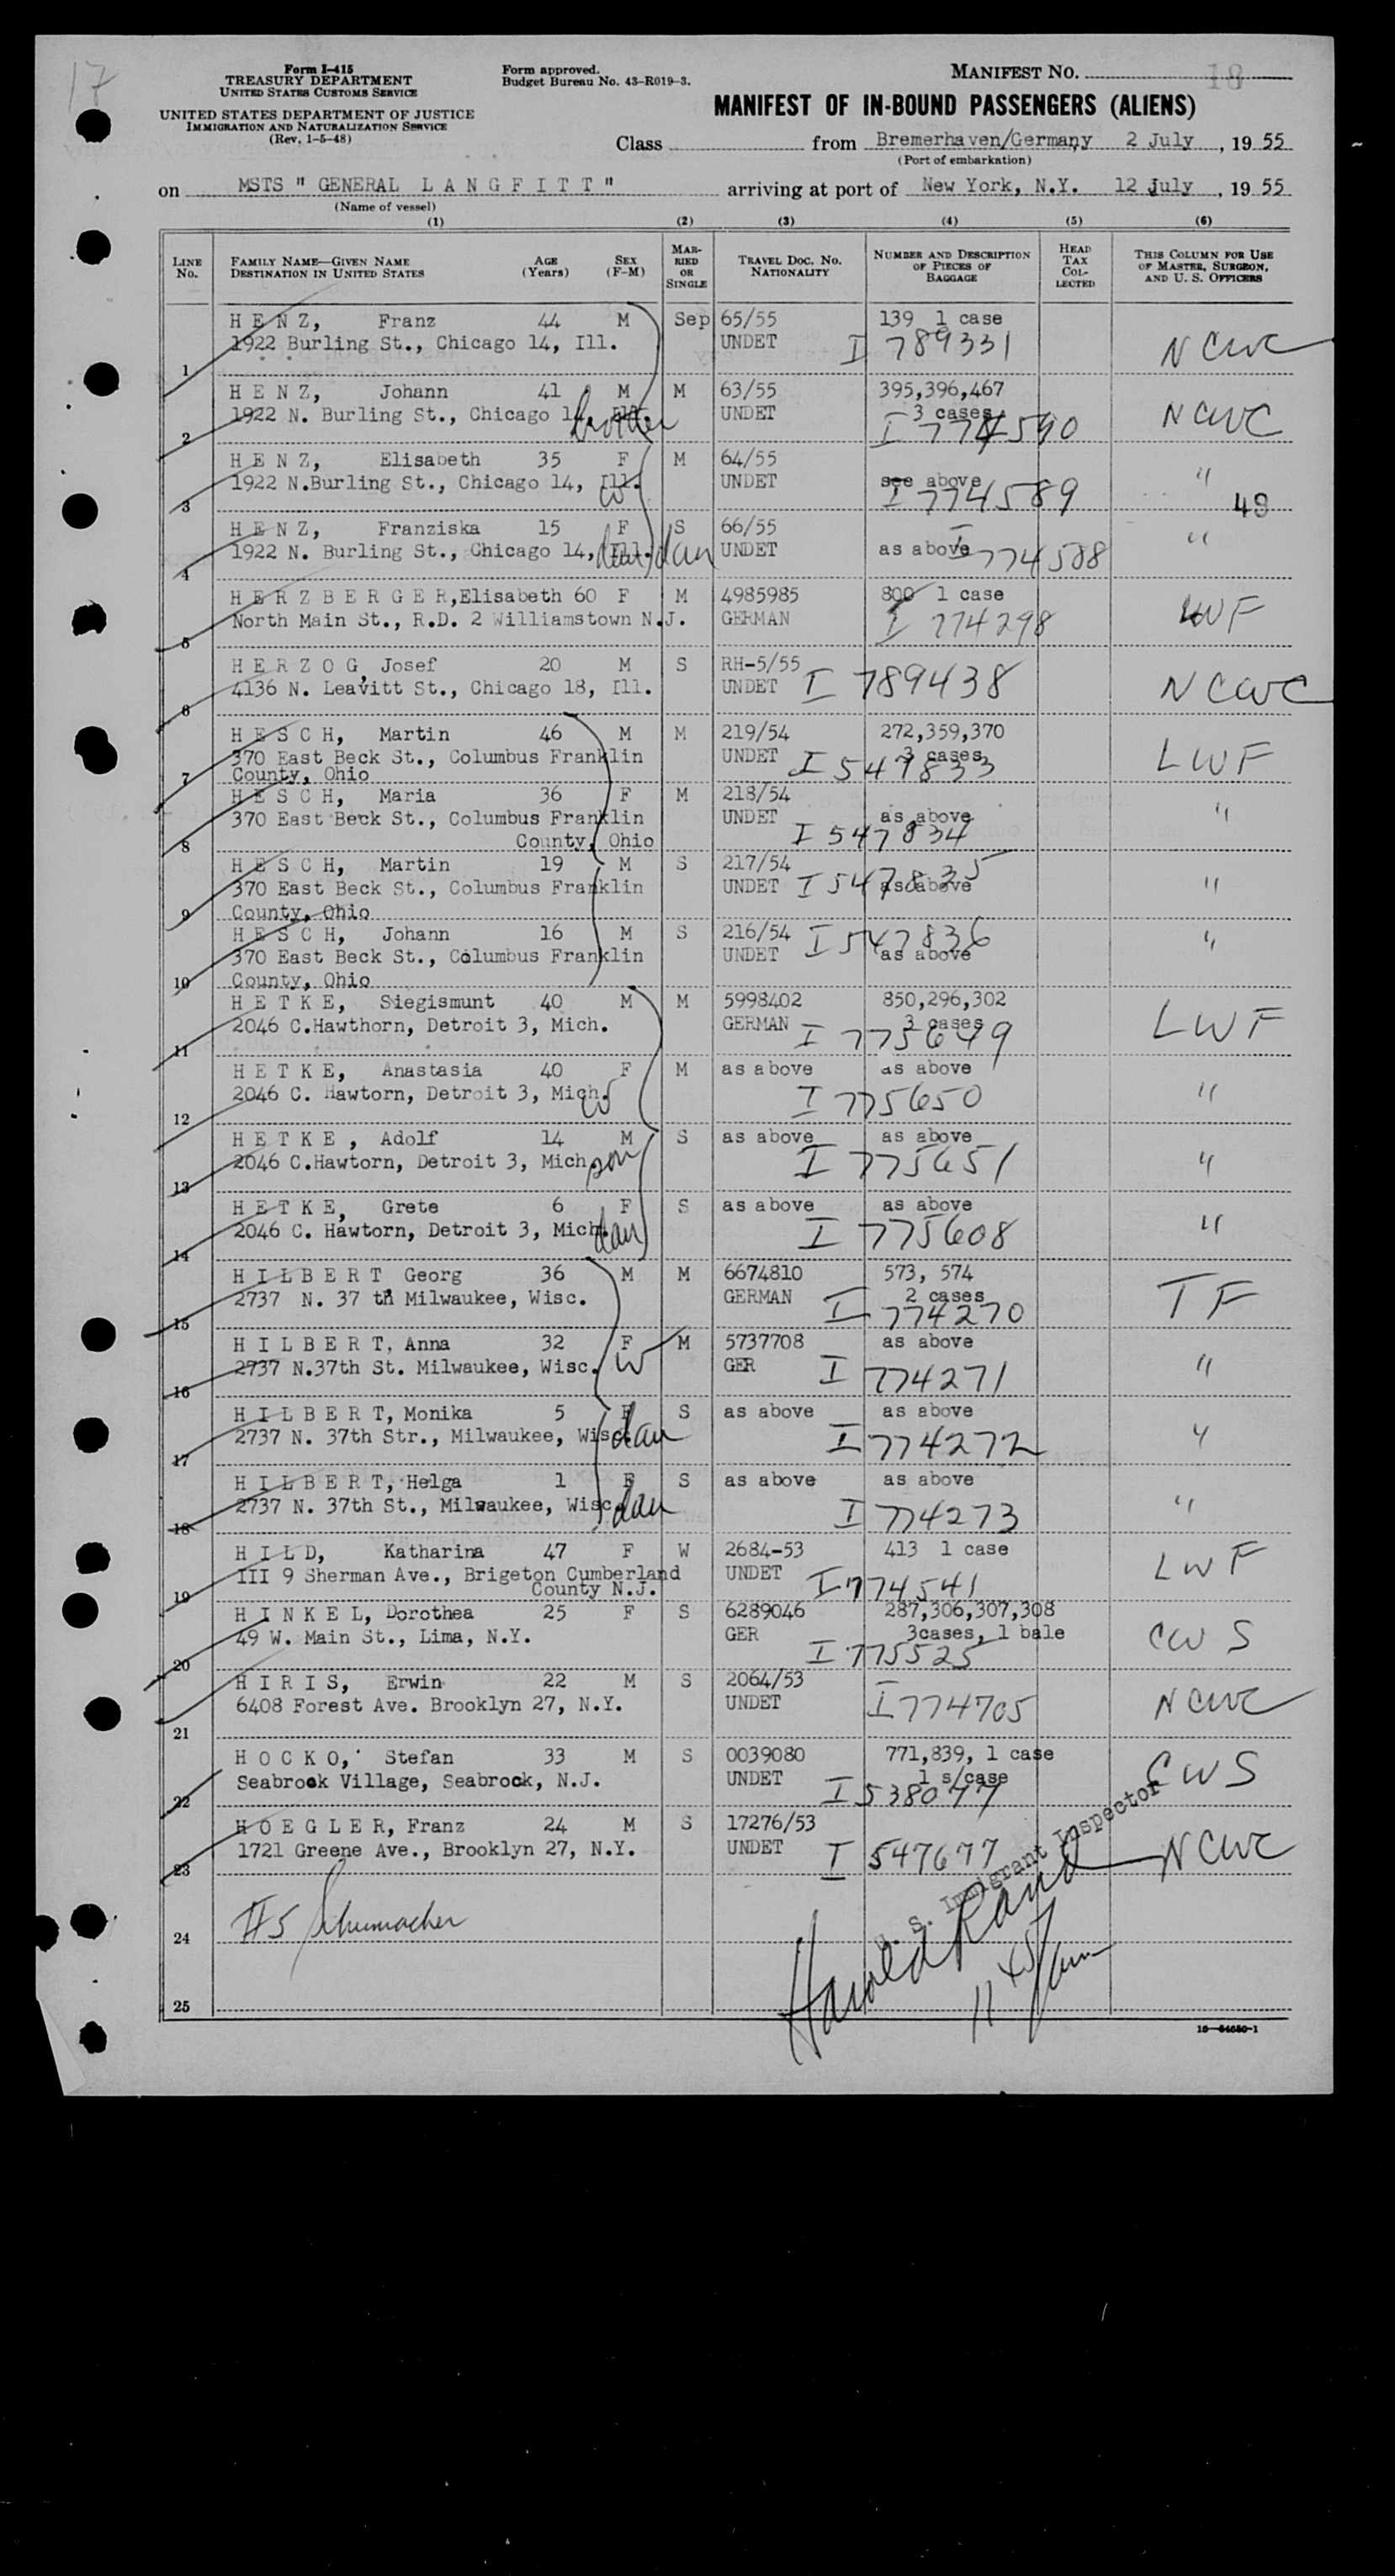 17
Form I-415
TREASURY DEPARTMENT
UNITED STATES CUSTOMS SERVICE
UNITED STATES DEPARTMENT OF JUSTICE
IMMIGRATION AND NATURALIZATION SERVICE
(Rev. 1-5-48)
Form approved.
Budget Bureau No. 43-R019-3.
MANIFEST NO. 18
MANIFEST OF IN-BOUND PASSENGERS (ALIENS)
Class from Bremerhaven/Germany 2 July, 19 55
(Port of embarkation)
on MSTS " GENERAL L A N G F I T T " arriving at port of New York, N.Y. 12 July, 19 55
(Name of vessel)
(1) (2) (3) (4) (5) (6)
LINE No. FAMILY NAME—GIVEN NAME DESTINATION IN UNITED STATES AGE (Years) SEX (F-M) MARRIED OR SINGLE TRAVEL DOC. NO. NATIONALITY NUMBER AND DESCRIPTION OF PIECES OF BAGGAGE HEAD TAX COLLECTED THIS COLUMN FOR USE OF MASTER, SURGEON, AND U. S. OFFICERS
H E N Z, Franz 44 M Sep 65/55 139 1 case
1 1922 Burling St., Chicago 14, Ill. UNDET I 789331 NCWC
H E N Z, Johann 41 M M 63/55 395,396,467
2 1922 N. Burling St., Chicago 14, Ill. brother UNDET 3 cases I 774590 NCWC
H E N Z, Elisabeth 35 F M 64/55
3 1922 N.Burling St., Chicago 14, Ill. W UNDET see above I 774589 "
49
H E N Z, Franziska 15 F S 66/55
4 1922 N. Burling St., Chicago 14, Ill. dau UNDET as above I 774588 "
H E R Z B E R G E R,Elisabeth 60 F M 4985985 800 1 case
5 North Main St., R.D. 2 Williamstown N.J. GERMAN I 774298 LWF
H E R Z O G, Josef 20 M S RH-5/55
6 4136 N. Leavitt St., Chicago 18, Ill. UNDET I 789438 NCWC
H E S C H, Martin 46 M M 219/54 272,359,370
7 370 East Beck St., Columbus Franklin UNDET 3 cases I 547833 LWF
County, Ohio
H E S C H, Maria 36 F M 218/54
370 East Beck St., Columbus Franklin UNDET as above "
8 County, Ohio I 547834
H E S C H, Martin 19 M S 217/54
370 East Beck St., Columbus Franklin UNDET I 547835 as above "
9 County, Ohio
H E S C H, Johann 16 M S 216/54 I 547836
370 East Beck St., Columbus Franklin UNDET as above "
10 County, Ohio
H E T K E, Siegismunt 40 M M 5998402 850,296,302
11 2046 C.Hawthorn, Detroit 3, Mich. GERMAN 3 cases I 775649 LWF
H E T K E, Anastasia 40 F M as above as above
12 2046 C. Hawtorn, Detroit 3, Mich. W I 775650 "
H E T K E , Adolf 14 M S as above as above
13 2046 C.Hawtorn, Detroit 3, Mich son I 775651 "
H E T K E, Grete 6 F S as above as above
14 2046 C. Hawtorn, Detroit 3, Mich. dau I 775608 "
H I L B E R T Georg 36 M M 6674810 573, 574
15 2737 N. 37 th Milwaukee, Wisc. GERMAN 2 cases I 774270 TF
H I L B E R T, Anna 32 F M 5737708 as above
16 2737 N.37th St. Milwaukee, Wisc. W GER I 774271 "
H I L B E R T, Monika 5 F S as above as above
17 2737 N. 37th Str., Milwaukee, Wisc. dau I 774272 "
H I L B E R T, Helga 1 F S as above as above
18 2737 N. 37th St., Milwaukee, Wisc. dau I 774273 "
H I L D, Katharina 47 F W 2684-53 413 1 case
III 9 Sherman Ave., Brigeton Cumberland UNDET I 774541 LWF
19 County N.J.
H I N K E L, Dorothea 25 F S 6289046 287,306,307,308
49 W. Main St., Lima, N.Y. GER 3cases, 1 bale CWS
20 I 775525
H I R I S, Erwin 22 M S 2064/53
6408 Forest Ave. Brooklyn 27, N.Y. UNDET I 774705 NCWC
21
H O C K O, Stefan 33 M S 0039080 771,839, 1 case
22 Seabrook Village, Seabrock, N.J. UNDET 1 s/case I 538077 CWS
H O E G L E R, Franz 24 M S 17276/53
23 1721 Greene Ave., Brooklyn 27, N.Y. UNDET I 547677 NCWC
24 #5 Schumacher
S. Immigrant Inspector
Harold Rand
11 45 am
25
16—54650-1